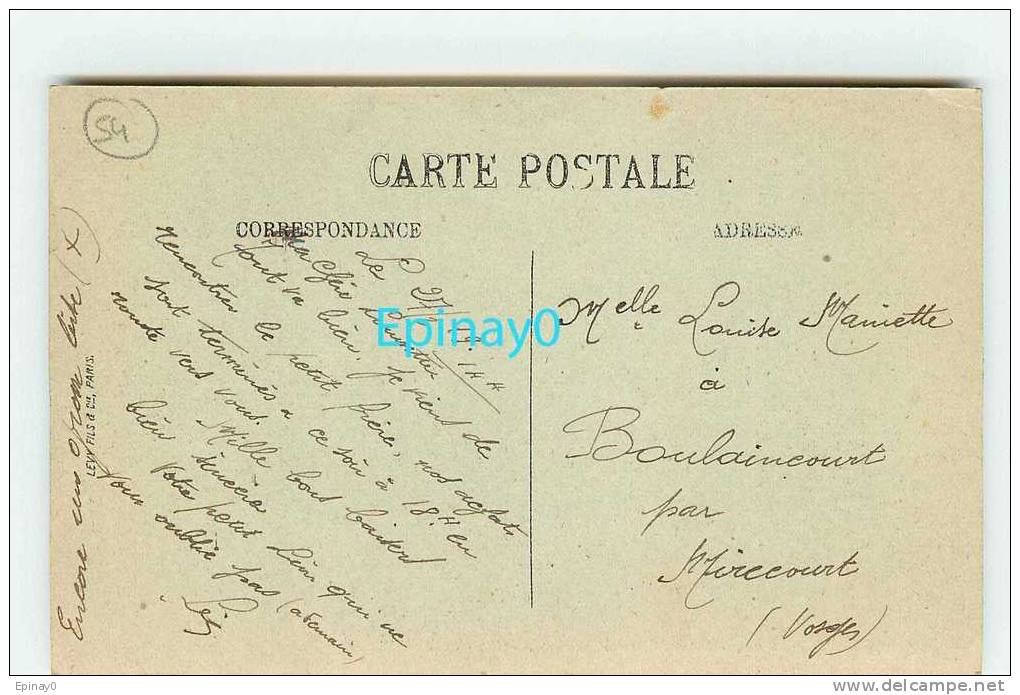 54
CARTE POSTALE
CORRESPONDANCE
ADRESSE
Le 27/
14 H
Ma Chère
Tout va bien, je viens de
rencontrer le petit frère, nos achats
sont terminés à ce soir à 18 H en
route vers vous. Mille bons baisers
bien sincères
Votre petit Léon qui ne
vous oublie pas (à demain)
Encore une
LEVY FILS & Cie, PARIS.
Melle Louise Mainette
à
Boulaincourt
par
Mirecourt
(Vosges)
Epinay0
Epinay0
www.delcampe.net